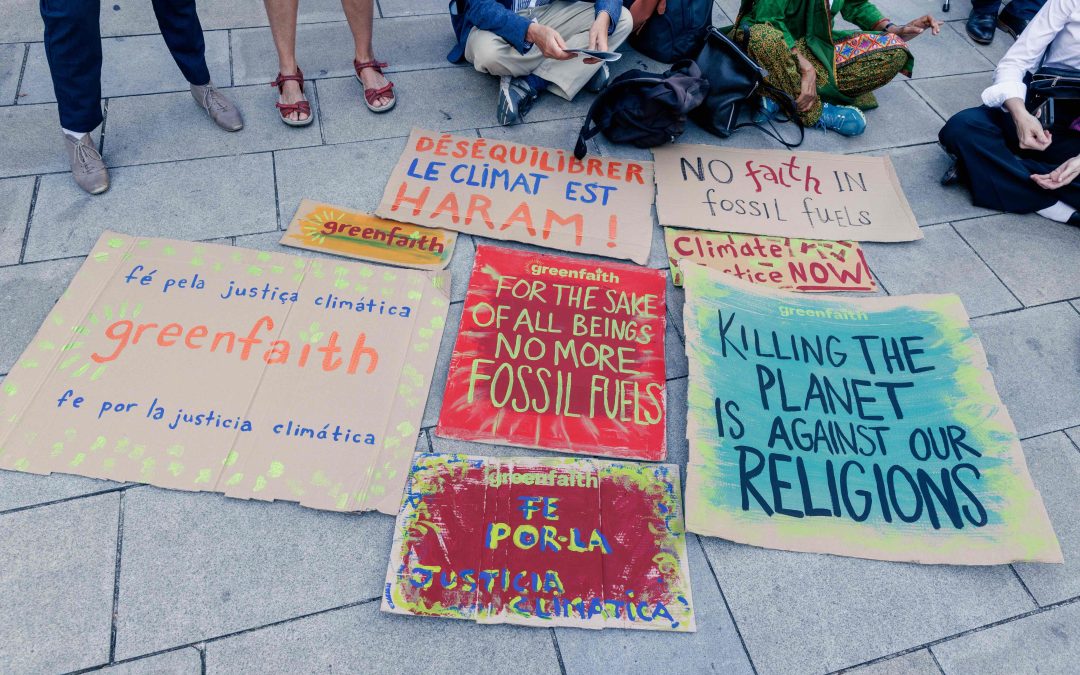 DÉSÉQUILIBRER
LE CLIMAT EST
HARAM !
NO faith IN
fossil fuels
greenfaith
Climate
stice NOW
fé pela justiça climática
greenfaith
fe por la justicia climática
greenfaith
FOR THE SAKE
OF ALL BEINGS
NO MORE
FOSSIL FUELS
greenfaith
KILLING THE
PLANET
IS AGAINST OUR
RELIGIONS
greenfaith
FE
POR-LA
JUSTICIA
CLIMATICA